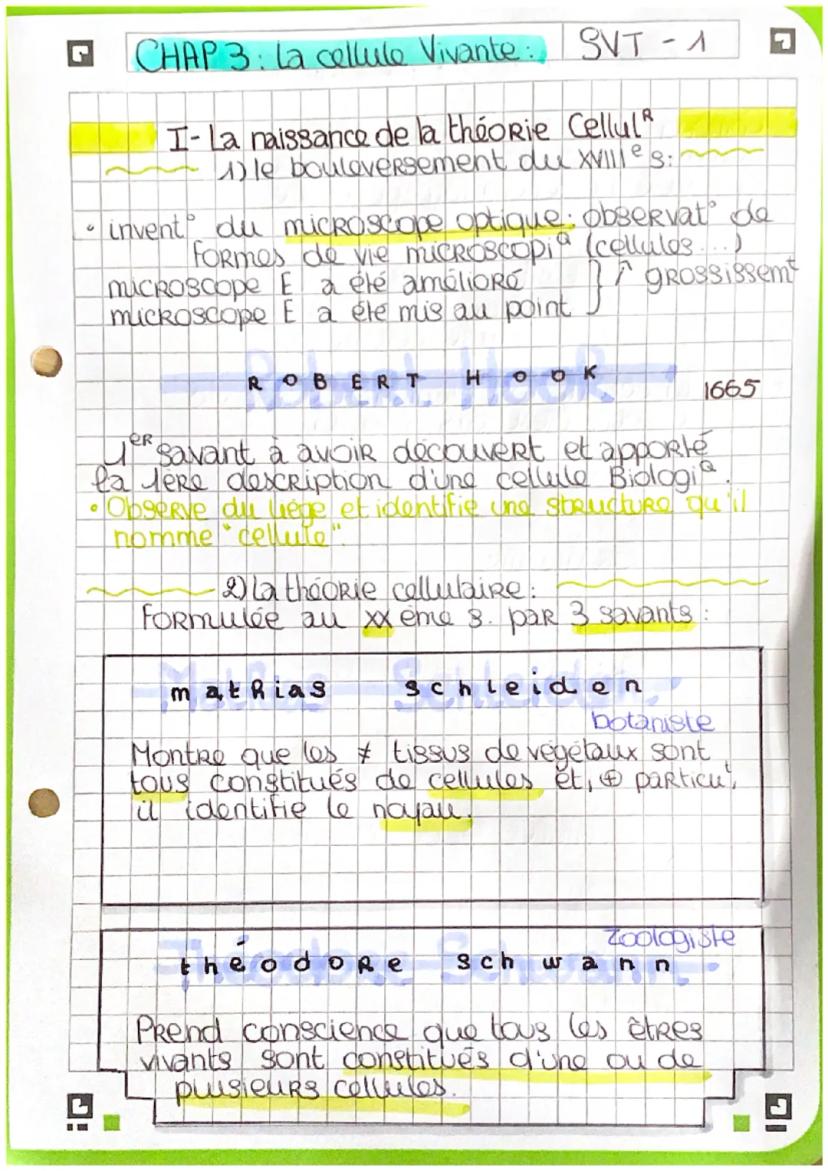 CHAP 3 : La cellule Vivante :
SVT - 1
I- La naissance de la théorie Cellulᴿ
1) le bouleversement du XVIIIᵉ s :
• invent° du microscope optique : observat° de
formes de vie microscopiᑫ (cellules...)
microscope E a été amélioré } ↑ grossissemᵗ
microscope E a été mis au point
ROBERT HOOK
1665
1ᵉᴿ savant à avoir découvert et apporté
la 1ère description d'une cellule Biologiᑫ.
• Observe du liège et identifie une structure qu'il
nomme "cellule".
2) La théorie cellulaire :
Formulée au XXème s. par 3 savants :
matRias schleiden
botaniste
Montre que les ≠ tissus de végétaux sont
tous constitués de cellules et, ⊕ particulᵗ,
il identifie le noyau.
Zoologiste
théodore schwann
Prend conscience que tous les êtres
vivants sont constitués d'une ou de
plusieurs cellules.